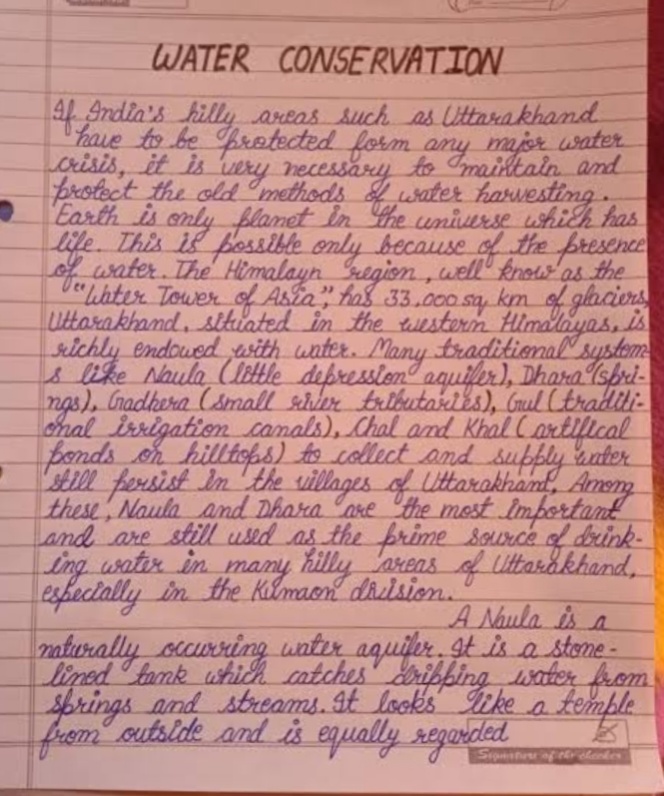 WATER CONSERVATION
If India's hilly areas such as Uttarakhand
have to be protected form any major water
crisis, it is very necessary to maintain and
protect the old methods of water harvesting.
Earth is only planet in the universe which has
life. This is possible only because of the presence
of water. The Himalayn region, well know as the
"Water Tower of Asia", has 33,000 sq km of glaciers,
Uttarakhand, situated in the western Himalayas, is
richly endowed with water. Many traditional system
s like Naula (little depression aquifer), Dhara (spri-
ngs), Gadhera (small river tributaries), Gul (traditi-
onal irrigation canals), Chal and Khal (artifical
ponds on hilltops) to collect and supply water
still persist in the villages of Uttarakhand, Among
these, Naula and Dhara are the most important
and are still used as the prime source of drink-
ing water in many hilly areas of Uttarakhand,
especially in the Kumaon division.
A Naula is a
naturally occurring water aquifer. It is a stone-
lined tank which catches dripping water from
springs and streams. It looks like a temple
from outside and is equally regarded
Signature of the checker